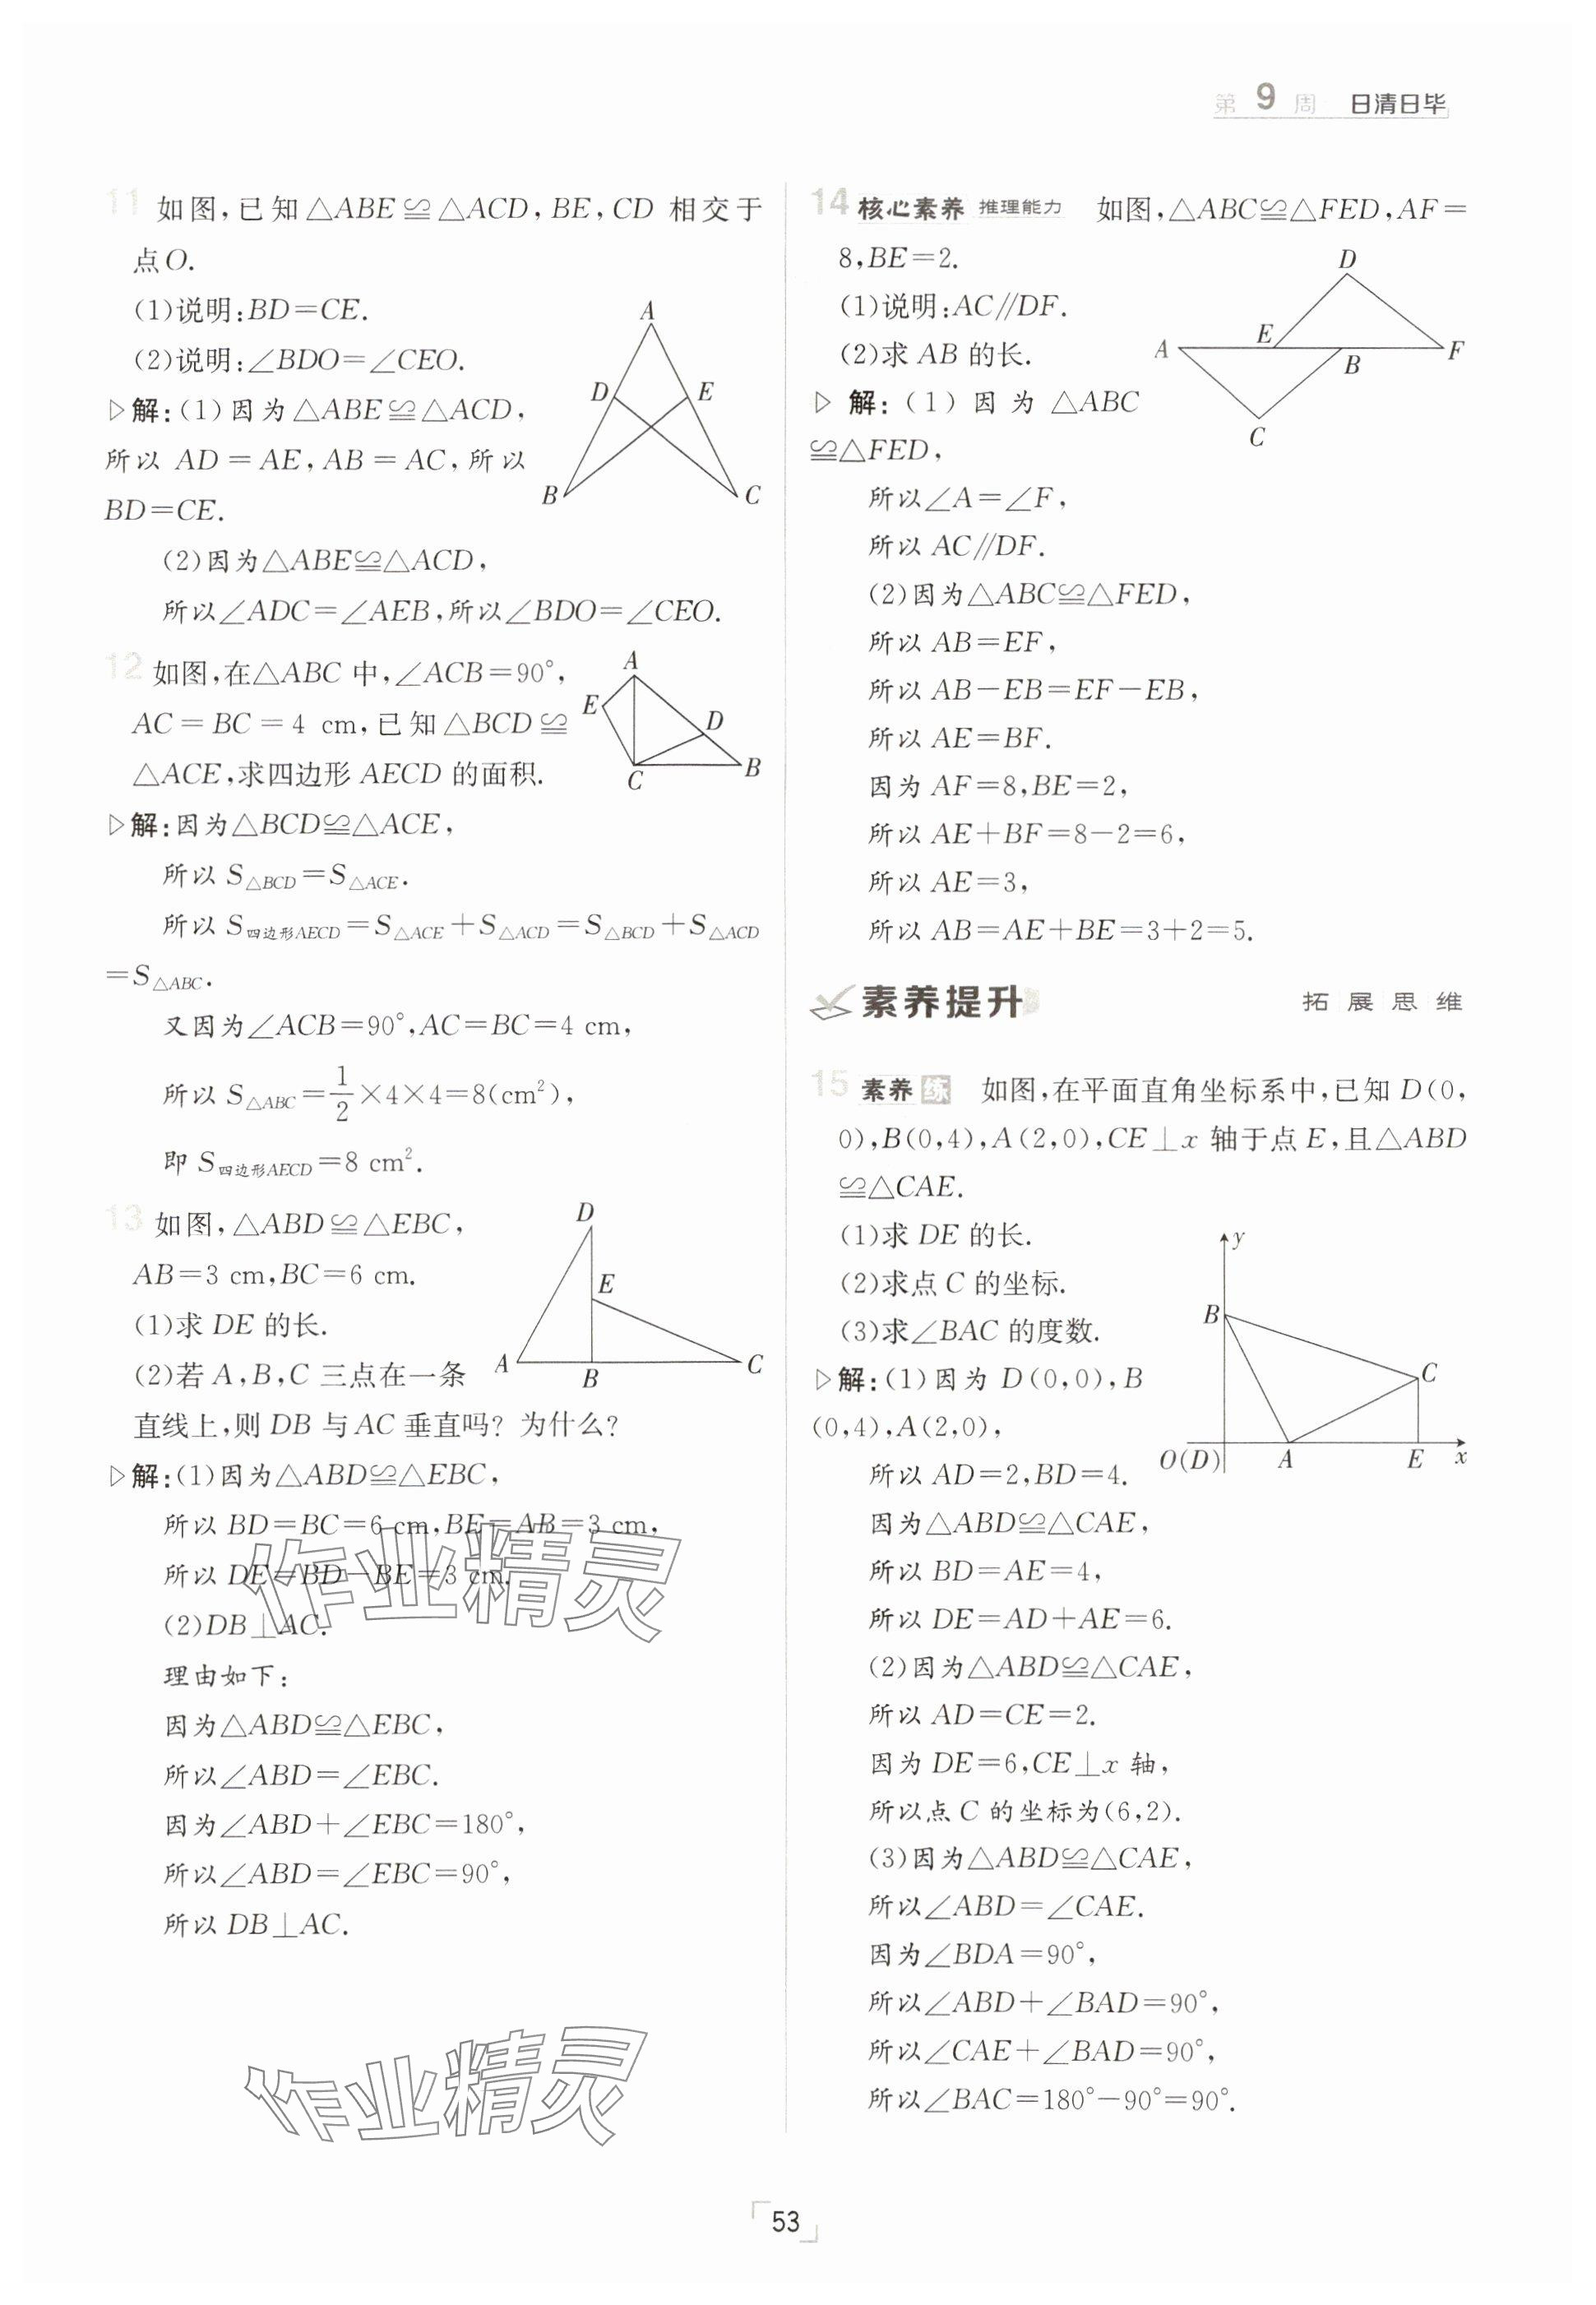 第 9 周 日清日毕
11 如图,已知△ABE≌△ACD,BE,CD 相交于
点O.
(1)说明:BD=CE.
(2)说明:∠BDO=∠CEO.
▷解:(1)因为△ABE≌△ACD,
所以 AD=AE,AB=AC,所以
BD=CE.
(2)因为△ABE≌△ACD,
所以∠ADC=∠AEB,所以∠BDO=∠CEO.
A
D
E
B
C
12 如图,在△ABC 中,∠ACB=90°,
AC=BC=4 cm,已知△BCD≌
△ACE,求四边形 AECD 的面积.
▷解:因为△BCD≌△ACE,
所以 S△BCD=S△ACE.
所以 S四边形AECD=S△ACE+S△ACD=S△BCD+S△ACD
=S△ABC.
又因为∠ACB=90°,AC=BC=4 cm,
所以 S△ABC=1/2×4×4=8(cm²),
即 S四边形AECD=8 cm².
A
E
D
C
B
13 如图,△ABD≌△EBC,
AB=3 cm,BC=6 cm.
(1)求 DE 的长.
(2)若 A,B,C 三点在一条
直线上,则 DB 与 AC 垂直吗? 为什么?
▷解:(1)因为△ABD≌△EBC,
所以 BD=BC=6 cm,BE=AB=3 cm,
所以 DE=BD-BE=3 cm.
(2)DB⊥AC.
理由如下:
因为△ABD≌△EBC,
所以∠ABD=∠EBC.
因为∠ABD+∠EBC=180°,
所以∠ABD=∠EBC=90°,
所以 DB⊥AC.
D
E
A
B
C
作业精灵
作业精灵
14 核心素养 推理能力 如图,△ABC≌△FED,AF=
8,BE=2.
(1)说明:AC∥DF.
(2)求 AB 的长.
▷解:(1)因为△ABC
≌△FED,
所以∠A=∠F,
所以 AC∥DF.
(2)因为△ABC≌△FED,
所以 AB=EF,
所以 AB-EB=EF-EB,
所以 AE=BF.
因为 AF=8,BE=2,
所以 AE+BF=8-2=6,
所以 AE=3,
所以 AB=AE+BE=3+2=5.
D
E
A
B
F
C
素养提升 拓展思维
15 素养 练 如图,在平面直角坐标系中,已知 D(0,
0),B(0,4),A(2,0),CE⊥x 轴于点 E,且△ABD
≌△CAE.
(1)求 DE 的长.
(2)求点 C 的坐标.
(3)求∠BAC 的度数.
▷解:(1)因为 D(0,0),B
(0,4),A(2,0),
所以 AD=2,BD=4.
因为△ABD≌△CAE,
所以 BD=AE=4,
所以 DE=AD+AE=6.
(2)因为△ABD≌△CAE,
所以 AD=CE=2.
因为 DE=6,CE⊥x 轴,
所以点 C 的坐标为(6,2).
(3)因为△ABD≌△CAE,
所以∠ABD=∠CAE.
因为∠BDA=90°,
所以∠ABD+∠BAD=90°,
所以∠CAE+∠BAD=90°,
所以∠BAC=180°-90°=90°.
y
B
C
O(D)
A
E
x
53